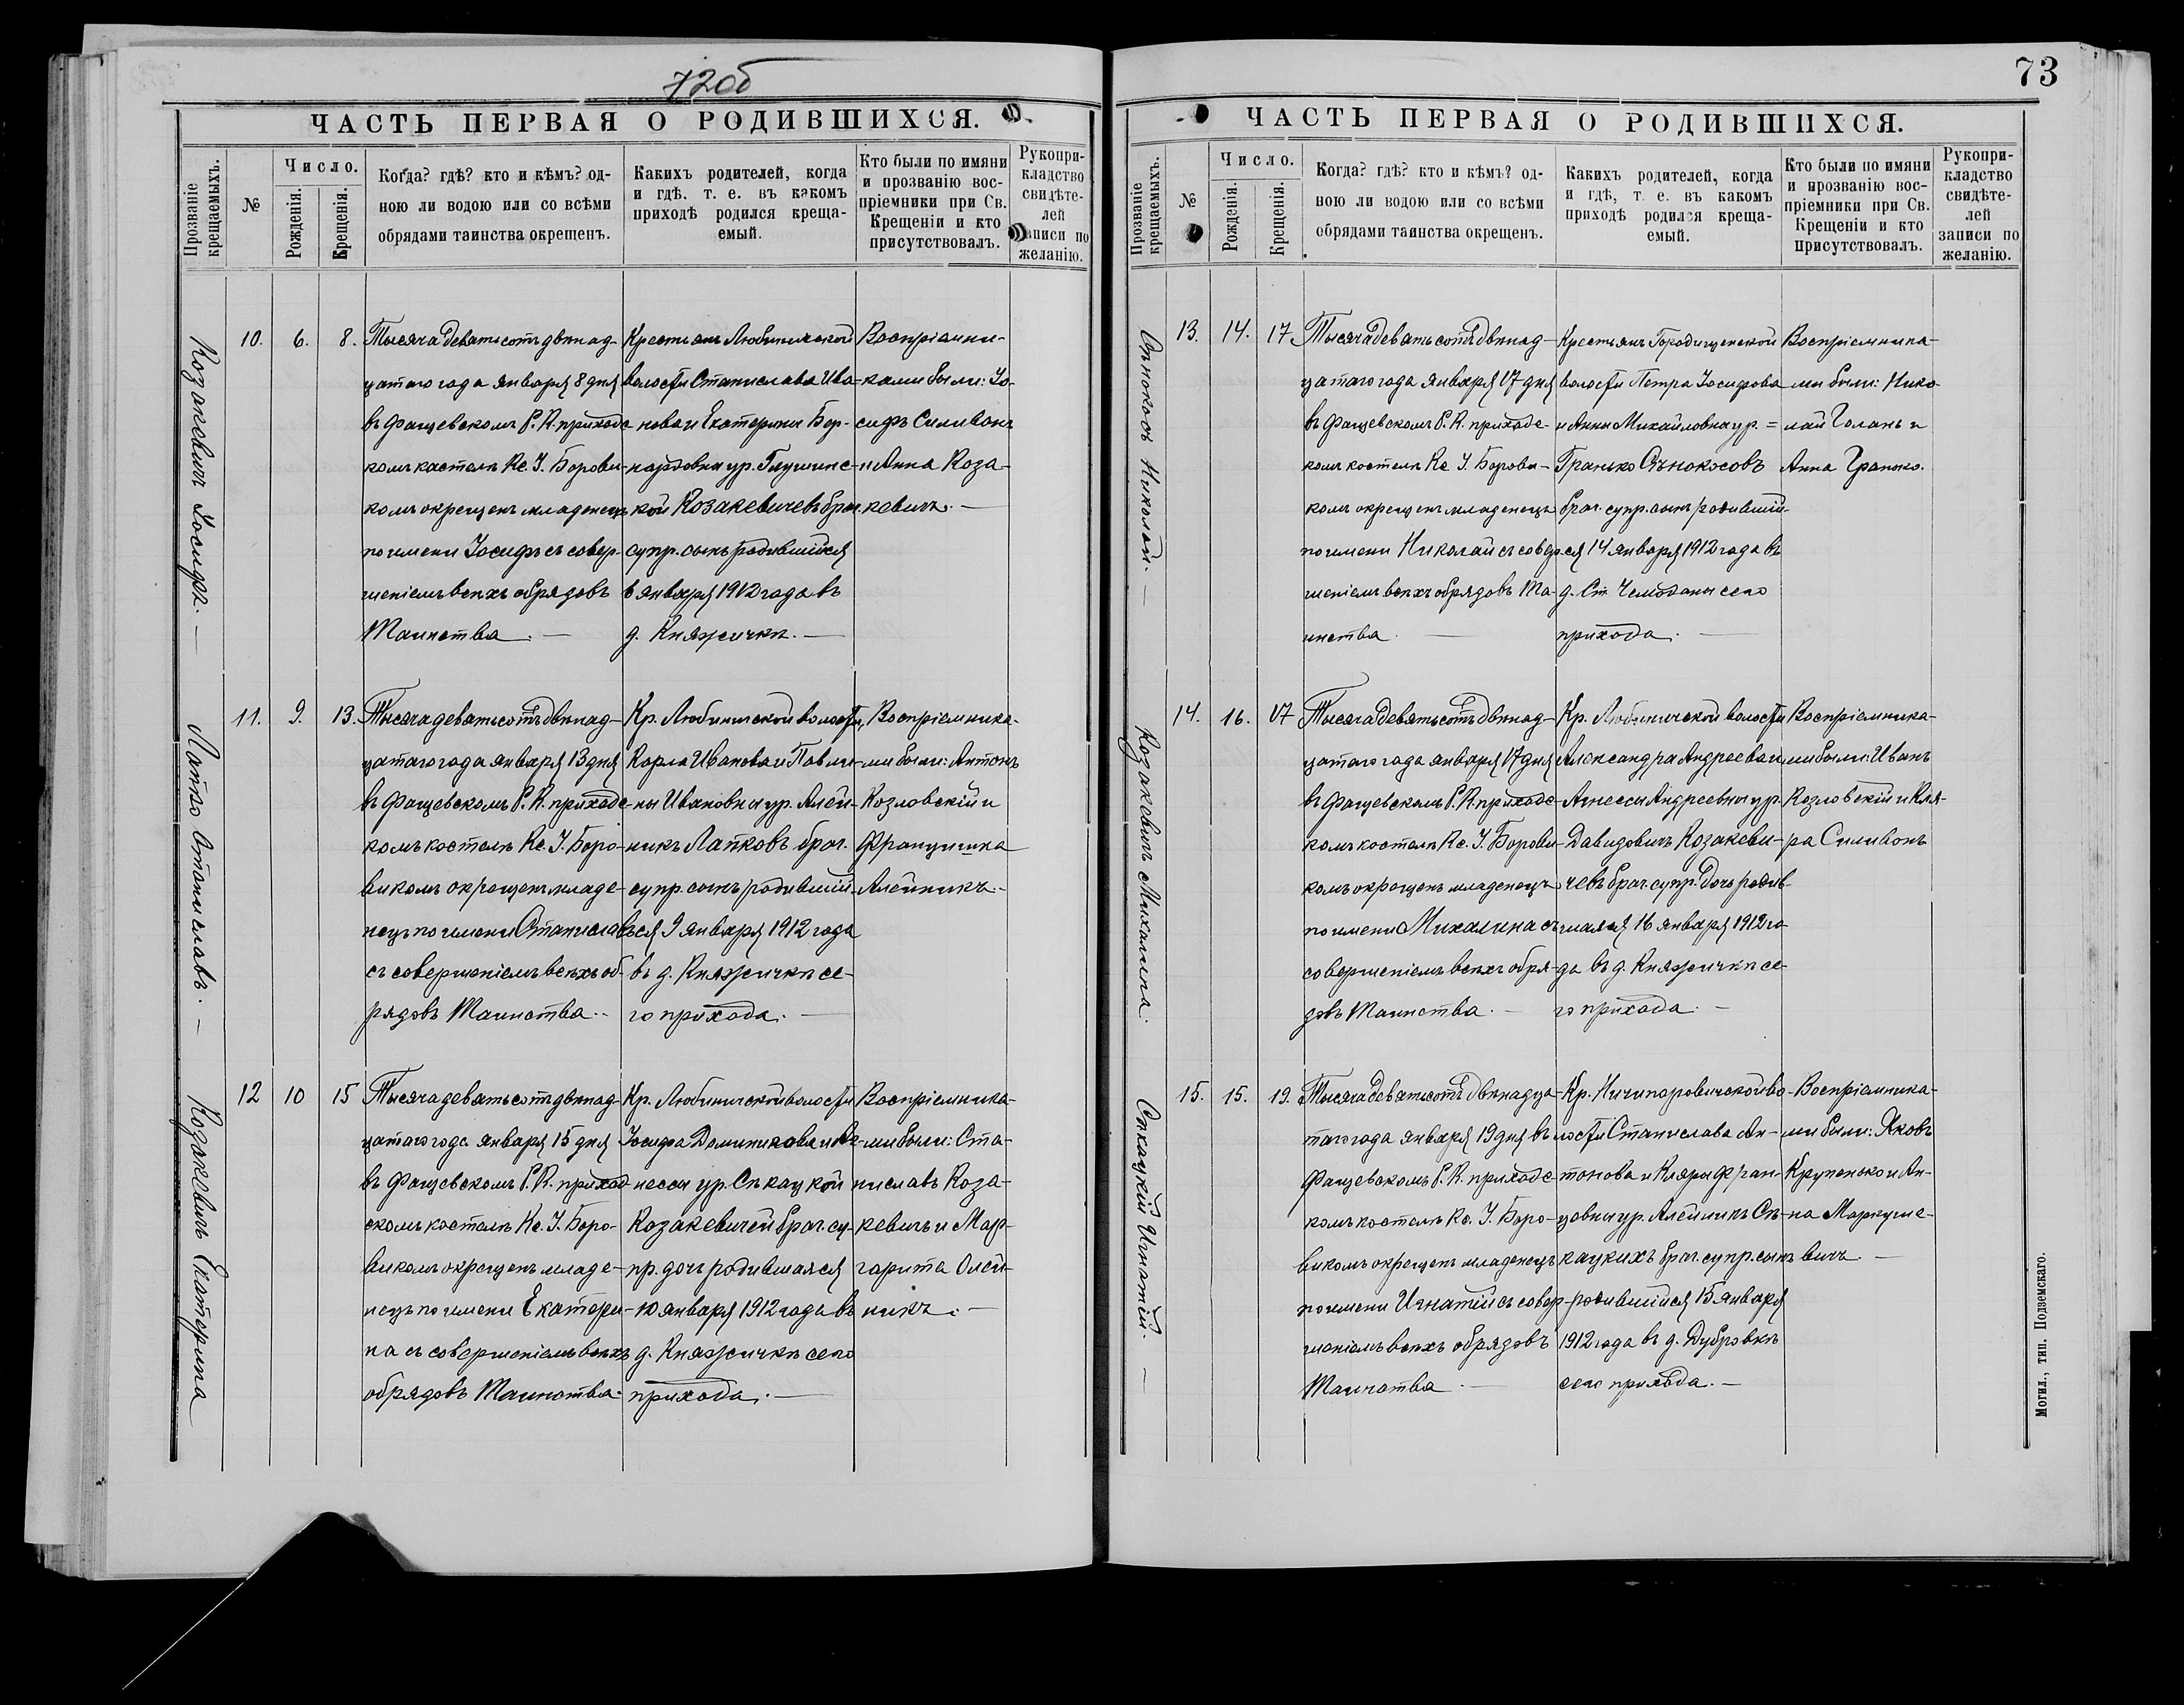 72об
ЧАСТЬ ПЕРВАЯ О РОДИВШИХСЯ.
Прозваніе крещаемыхъ.
№
Число.
Рожденія.
Крещенія.
Когда? гдѣ? кто и кѣмъ? од-
ною ли водою или со всѣми
обрядами таинства окрещенъ.
Какихъ родителей, когда
и гдѣ. т. е. въ какомъ
приходѣ родился креща-
емый.
Кто были по имяни
и прозванію вос-
пріемники при Св.
Крещеніи и кто
присутствовалъ.
Рукопри-
кладство
свидѣте-
лей
записи по
желанію.
Козакевичъ Іосифъ. —
10.
6.
8.
Тысяча девятьсотъ двѣнад-
цатаго года января 8 дня
въ Фащевскомъ Р. К. приходс-
комъ костелѣ Кс. І. Борови-
комъ окрещенъ младенецъ
по имени Іосифъ съ совер-
шеніемъ всѣхъ обрядовъ
Таинства. —
Крестьянъ Любиничской
волости Станислава Ива-
нова и Екатерины Бер-
нардовны ур. Глушинс-
кой Козакевичевъ брач.
супр. сынъ родившійся
6 января 1912 года въ
д. Княжичкѣ. —
Воспріемни-
ками были: Іо-
сифъ Силивонъ
и Анна Коза-
кевичъ. —
Лапко Станиславъ. —
11.
9.
13.
Тысяча девятьсотъ двѣнад-
цатаго года января 13 дня
въ Фащевскомъ Р. К. приходс-
комъ костелѣ Кс. І. Боро-
викомъ окрещенъ младе-
нецъ по имени Станиславъ
съ совершеніемъ всѣхъ об-
рядовъ Таинства. -
Кр. Любиничской волости,
Карла Иванова и Павли-
ны Ивановны ур. Алей-
никъ Лапковъ брач.
супр. сынъ родившій-
ся 9 января 1912 года
въ д. Княжичкѣ се-
го прихода. —
Воспріемника-
ми были: Антонъ
Козловскій и
Францишка
Алейникъ. -
Козакевичъ Екатерина
12
10
15
Тысяча девятьсотъ двѣнад-
цатаго года января 15 дня
въ Фащевскомъ Р. К. приход-
скомъ костелѣ Кс. І. Боро-
викомъ окрещенъ младе-
нецъ по имени Екатери-
на съ совершеніемъ всѣхъ
обрядовъ Таинства.
Кр. Любиничской волости
Іосифа Доминикова и Аг-
нессы ур. Сѣкацкой
Козакевичей брач. су-
пр. дочь родившаяся
10 января 1912 года въ
д. Княжичкѣ сего
прихода. —
Воспріемника-
ми были: Ста-
ниславъ Коза-
кевичъ и Мар-
гарита Олей-
никъ. —
73
ЧАСТЬ ПЕРВАЯ О РОДИВШИХСЯ.
Прозваніе крещаемыхъ.
№
Число.
Рожденія.
Крещенія.
Когда? гдѣ? кто и кѣмъ? од-
ною ли водою или со всѣми
обрядами таинства окрещенъ.
Какихъ родителей, когда
и гдѣ, т. е. въ какомъ
приходѣ родился креща-
емый.
Кто были по имяни
и прозванію вос-
пріемники при Св.
Крещеніи и кто
присутствовалъ.
Рукопри-
кладство
свидѣте-
лей
записи по
желанію.
Сѣнокосъ Николай. —
13.
14.
17
Тысяча девятьсотъ двѣнад-
цатаго года января 17 дня
въ Фащевскомъ Р. К. приходс-
комъ костелѣ Кс. І. Борови-
комъ окрещенъ младенецъ
по имени Николай съ совер-
шеніемъ всѣхъ обрядовъ Та-
инства. —
Крестьянъ Городищенской
волости Петра Іосифова
и Анны Михайловны ур. =
Гранько Сѣнокосовъ
брач. супр. сынъ родившій-
ся 14 января 1912 года въ
д. Ст. Чемоданы сего
прихода. —
Воспріемника-
ми были: Нико-
лай Голанъ и
Анна Гранько.
Козакевичъ Михалина.
14.
16.
17
Тысяча девятьсотъ двѣнад-
цатаго года января 17 дня
въ Фащевскомъ Р. К. приходс-
комъ костелѣ Кс. І. Борови-
комъ окрещенъ младенецъ
по имени Михалина съ
совершеніемъ всѣхъ обря-
довъ Таинства. —
Кр. Любиничской волости
Александра Андреева и
Агнессы Андреевны ур.
Давидовичъ Козакеви-
чевъ брач. супр. дочь родив-
шаяся 16 января 1912 го-
да въ д. Княжичкѣ се-
го прихода. —
Воспріемника-
ми были: Иванъ
Козловскій и Кля-
ра Силивонъ
Сѣкацкій Игнатій. —
15.
15.
19.
Тысяча девятьсотъ двѣнадца-
таго года января 19 дня въ
Фащевскомъ Р. К. приходс-
комъ костелѣ Кс. І. Боро-
викомъ окрещенъ младенецъ
по имени Игнатій съ совер-
шеніемъ всѣхъ обрядовъ
Таинства. —
Кр. Ничипоровичской во-
лости Станислава Ан-
тонова и Кляры Фран-
цовны ур. Алейникъ Сѣ-
кацкихъ брач. супр. сынъ
родившійся 15 января
1912 года въ д. Дубровкѣ
сего прихода. —
Воспріемника-
ми были: Яковъ
Крупенько и Ан-
на Маркуше-
вичъ —
Могил., тип. Подземскаго.